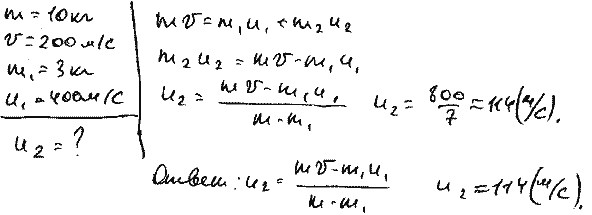 m = 10 кг
v = 200 м/с
m₁ = 3 кг
u₁ = 400 м/с
u₂ = ?
mv = m₁u₁ + m₂u₂
m₂u₂ = mv - m₁u₁
u₂ = (mv - m₁u₁)/(m - m₁) u₂ = 800/7 ≈ 114 (м/с).
Ответ: u₂ = (mv - m₁u₁)/(m - m₁) u₂ ≈ 114 (м/с).